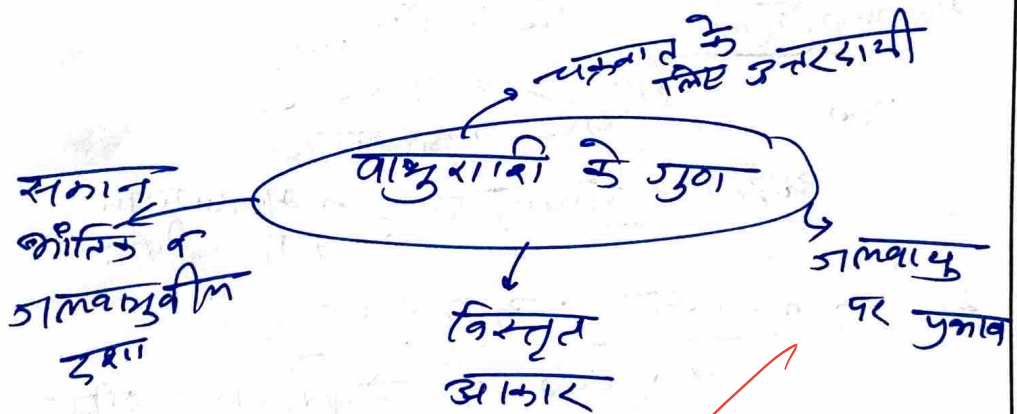 चक्रवात के
लिए उत्तरदायी
वायुराशि के गुण
समान
भौतिक व
जलवायुवीय
दशा
विस्तृत
आकार
जलवायु
पर प्रभाव